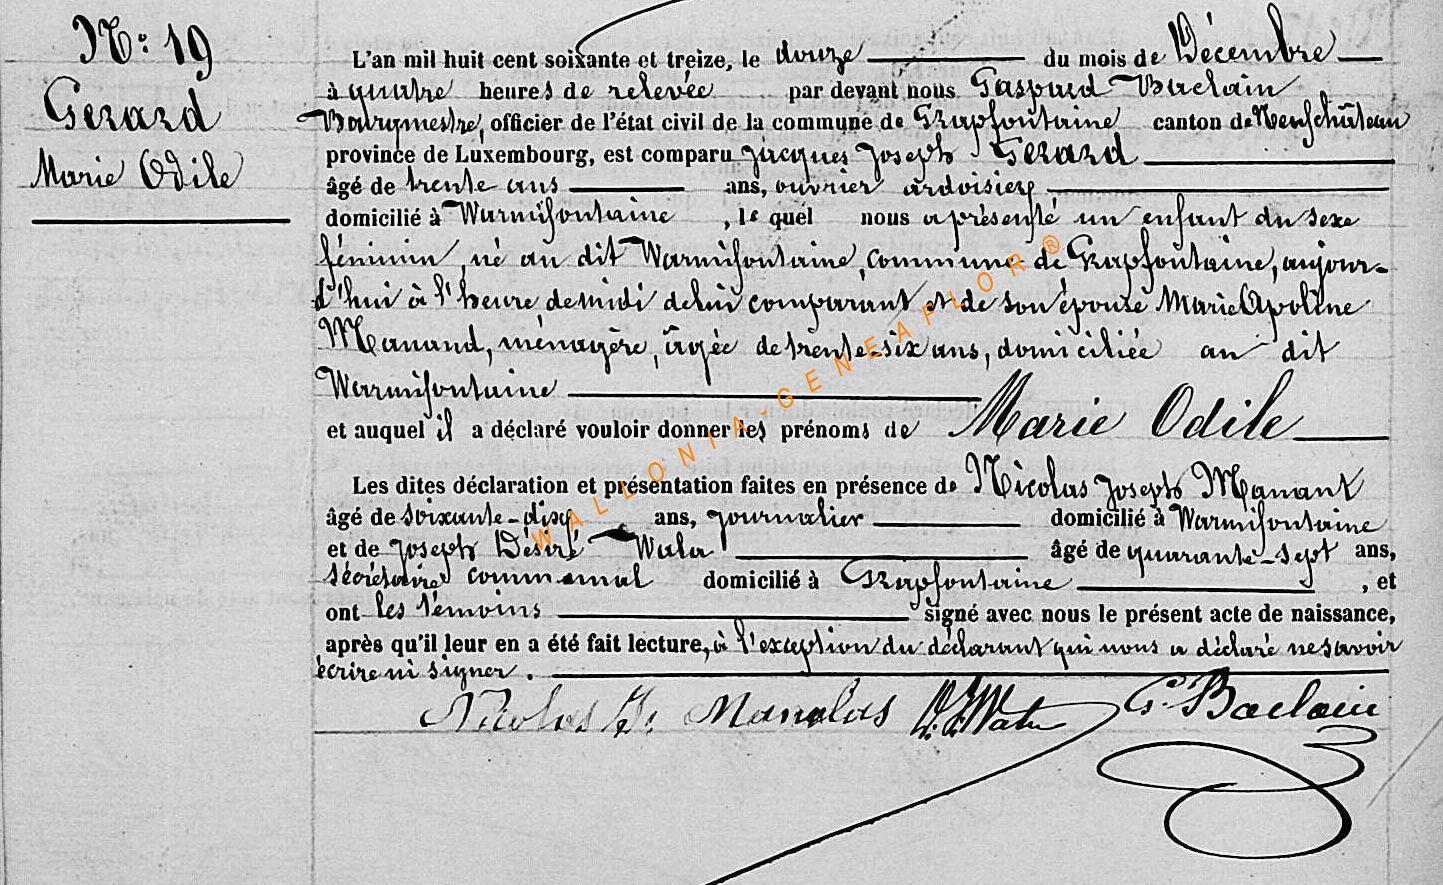 N°: 19
Gerard
Marie Odile
L'an mil huit cent soixante et treize, le douze du mois de Décembre
à quatre heures de relevée par devant nous Gaspard Baclain
Bourgmestre, officier de l'état civil de la commune de Grapfontaine canton de Neufchâteau
province de Luxembourg, est comparu Jacques Joseph Gerard
âgé de trente ans ans, ouvrier ardoisier
domicilié à Warmifontaine, lequel nous a présenté un enfant du sexe
féminin, né au dit Warmifontaine, commune de Grapfontaine, aujour-
d'hui à l'heure de midi de lui comparant et de son épouse Marie Apoline
Manand, ménagère, âgée de trente-six ans, domiciliée au dit
Warmifontaine
et auquel il a déclaré vouloir donner les prénoms de Marie Odile
Les dites déclaration et présentation faites en présence de Nicolas Joseph Manant
âgé de soixante-dix ans, journalier domicilié à Warmifontaine
et de Joseph Désiré Wala âgé de quarante-sept ans,
secrétaire communal domicilié à Grapfontaine, et
ont les témoins signé avec nous le présent acte de naissance,
après qu'il leur en a été fait lecture, à l'exception du déclarant qui nous a déclaré ne savoir
écrire ni signer.
Nicolas J. G. Baclain
WALLONIA-GENEAFLOR®